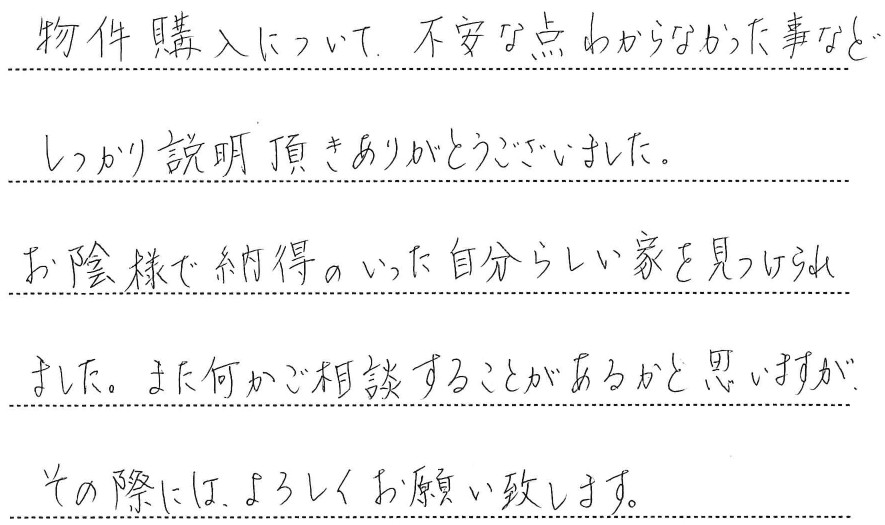 物件購入について、不安な点わからなかった事など
しっかり説明頂きありがとうございました。
お陰様で納得のいった自分らしい家を見つけられ
ました。また何かご相談することがあるかと思いますが、
その際には、よろしくお願い致します。